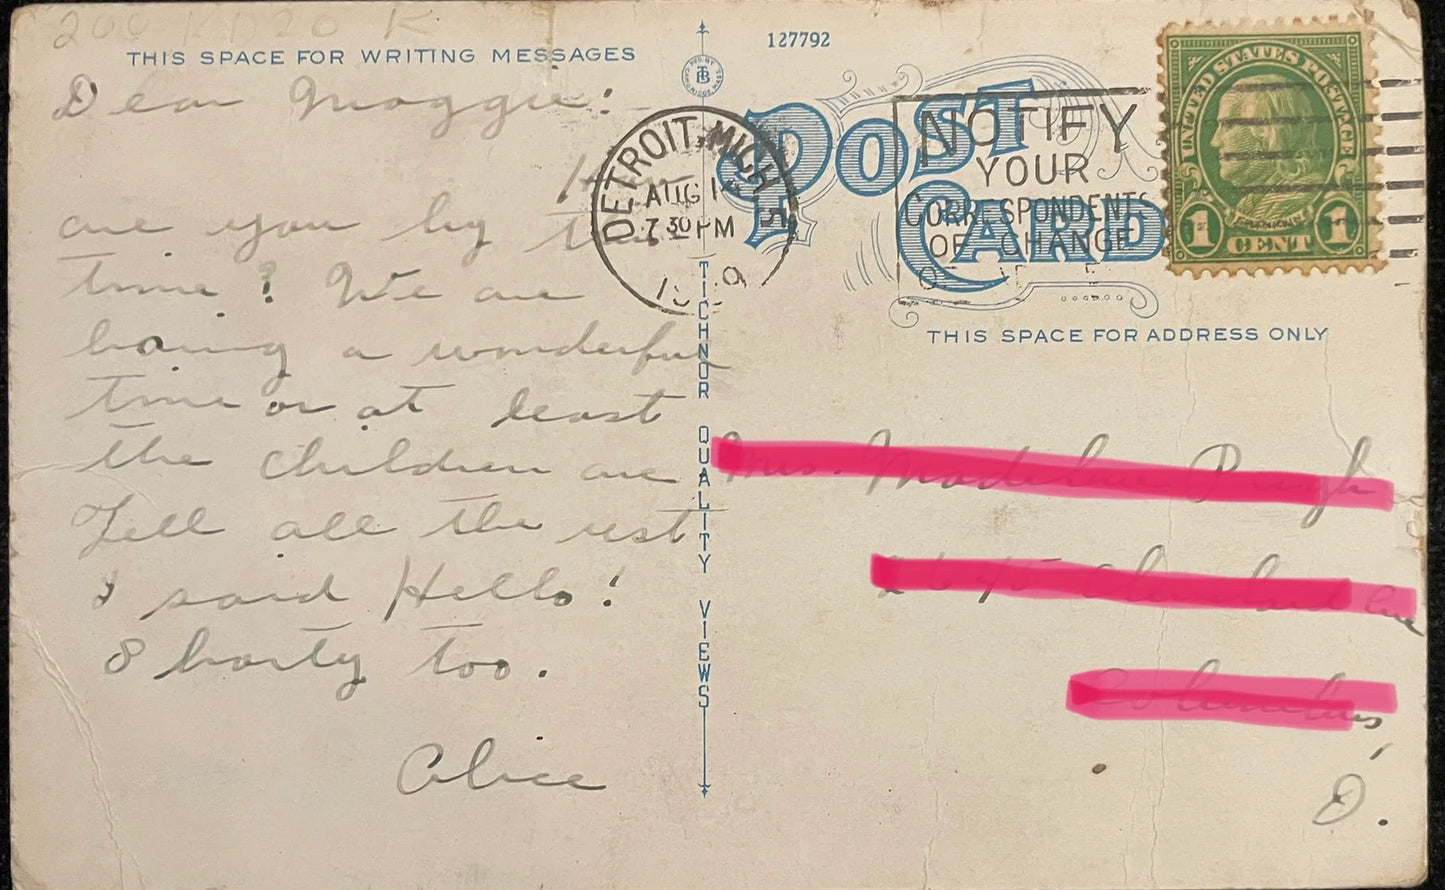 THIS SPACE FOR WRITING MESSAGES
Dear Maggie!
are you by this
time? We are
having a wonderful
time or at least
the children are
Tell all the rest
I said Hello!
Shorty too.
Alice
TICHNOR QUALITY VIEWS
127792
POST
CARD
DETROIT, MICH
AUG 1
7 30 PM
NOTIFY
YOUR
CORRESPONDENTS
OF CHANGE
UNITED STATES POSTAGE
FRANKLIN
1 CENT 1
THIS SPACE FOR ADDRESS ONLY
Columbus,
O.